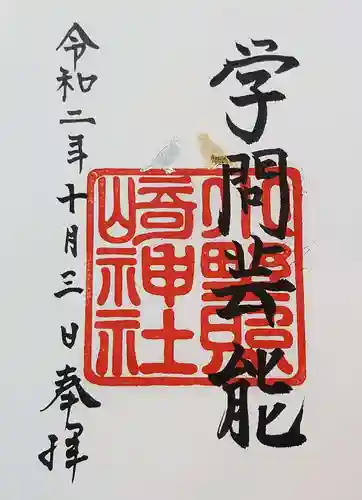 学問芸能
令和二年十月三日奉拝
小野照
崎神社